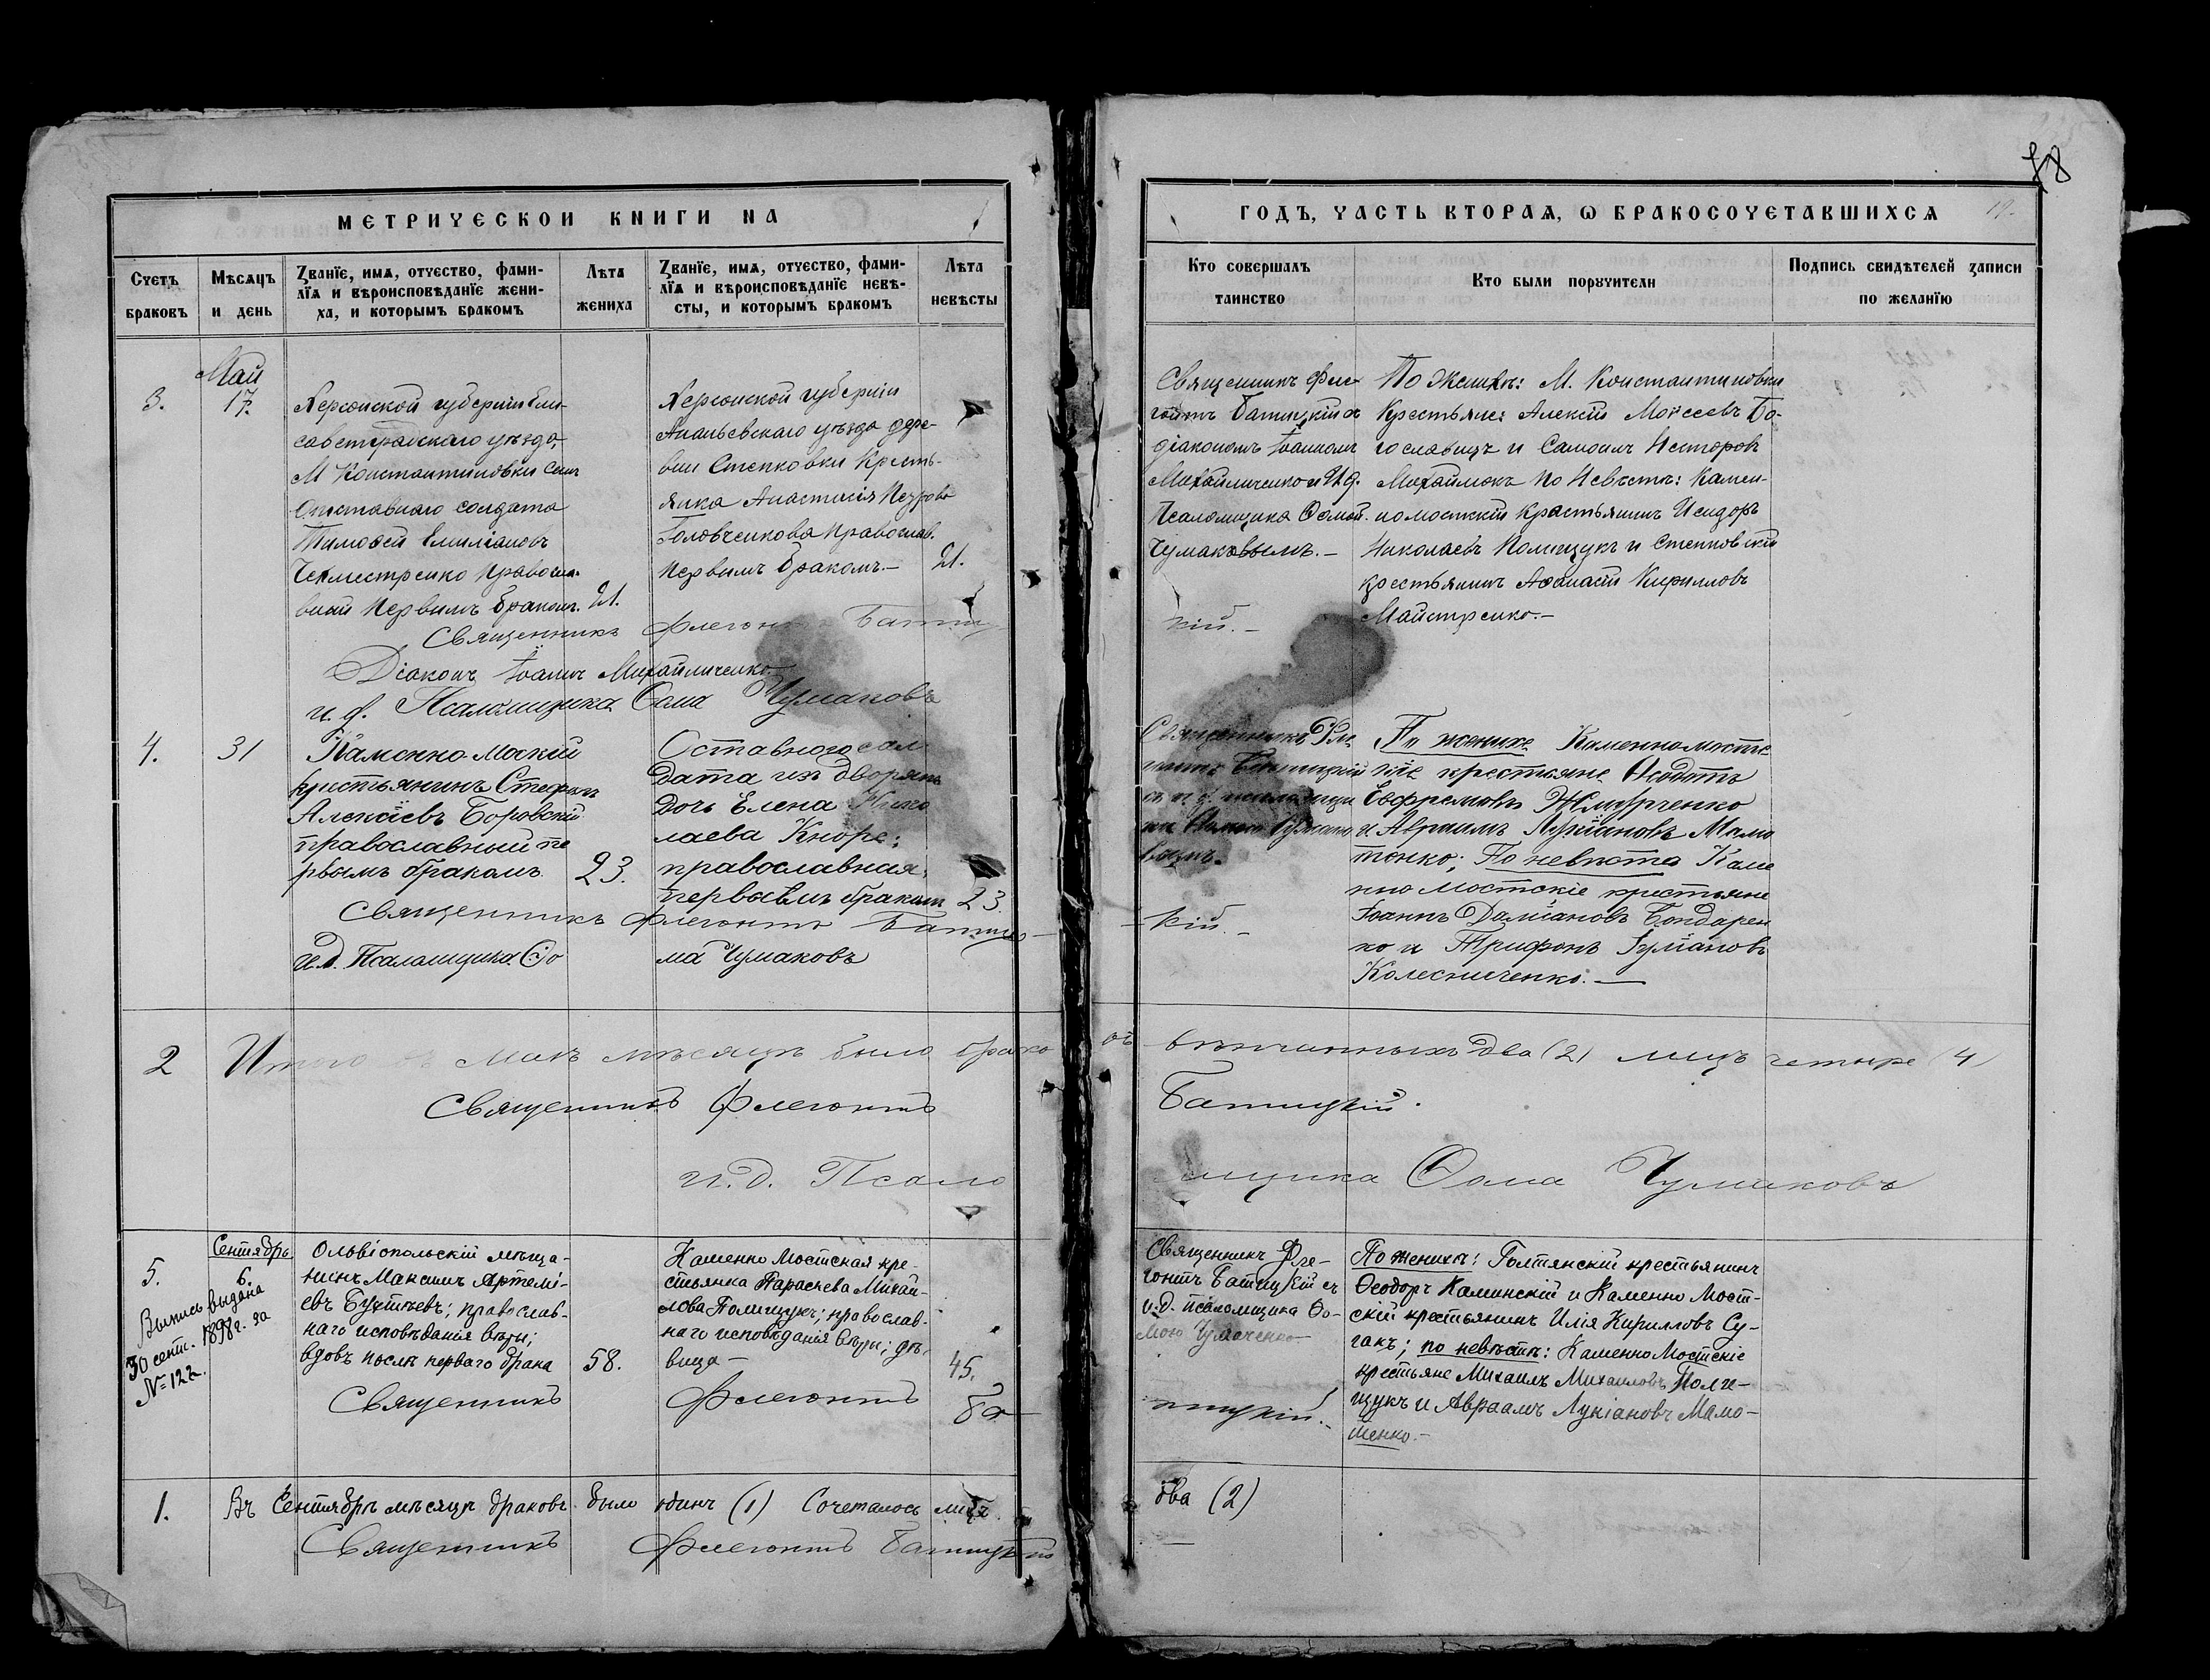 78
МЕТРИЧЕСКОИ КНИГИ НА
ГОДЪ, ЧАСТЬ ВТОРАѦ, Ѡ БРАКОСОЧЕТАВШИХСѦ
19
Счетъ браковъ
Мѣсѧцъ и день
Званїе, имѧ, отчество, фами-
лїѧ и вѣроисповѣданїе жени-
ха, и которымъ бракомъ
Лѣта жениха
Званїе, имѧ, отчество, фами-
лїѧ и вѣроисповѣданїе невѣ-
сты, и которымъ бракомъ
Лѣта невѣсты
Кто совершалъ таинство
Кто были порꙋчители
Подпись свидѣтелей записи
по желанїю
3.
Май
17.
Херсонской губерніи Ели-
саветградскаго уѣзда,
М Константиновки сынъ
отставнаго солдата
Тимоѳей Емиліановъ
православ-
ный первымъ бракомъ.
21.
Херсонской губерніи
Ананьевскаго уѣзда дере-
вни Степковки кресть-
янка Анастасія Петрова
Головченкова православ.
первымъ бракомъ.–
21.
Священникъ Фле-
гонтъ Батицкій съ
діакономъ Іоанном
Михайличенко и И.д.
Псаломщика Ѳомой
Чумаковымъ.–
По женихѣ: М. Константиновки
Крестьяне: Алексій Моѵсеевъ Бо-
гославецъ и Самоилъ Несторовъ
Михайлюкъ по Невѣстѣ: Камен-
номостскій крестьянинъ Исидоръ
Николаевъ Полищукъ и Степковскій
крестьянинъ Аѳанасій Кирилловъ
Майстренко.–
Священникъ Флегонтъ Батиц
кій.–
Діаконъ Іоаннъ Михайличенко
и. д. Псаломщика Ѳома Чумаковъ
4.
31
Каменно-Мостскій
крестьянинъ Стефанъ
Алексіевъ Боровскій
православный пе
рвымъ бракомъ
23.
Оставного сол
дата изъ дворянъ
дочь Елена Нико
лаева Кноре;
православная,
первымъ бракомъ
23
Священникъ Фле
гонтъ Батицкій
съ и. д. псаломщи
ка Ѳомою Чумако
вымъ.
По женихе Каменномостс
кіе крестьяне Ѳеодотъ
Евфремовъ
и Авраамъ Лукіановъ Мамо
тенко; По невѣста Каме
нно Мостскіе крестьяне
Іоаннъ Даміановъ Бондарен
ко и Трифонъ
Колесниченко.—
Священникъ Флегонтъ Батиц
кій.–
И.д. Псаломщика Ѳо
ма Чумаковъ
2
Итого въ маѣ мѣсяцѣ было брако
въ вѣнчанныхъ два (2) лицъ четыре (4)
Священникъ Флегонтъ
Батицкій.
и.д. Псало
мщика Ѳома Чумаковъ
5.
Сентябрь
6.
Выпись выдана
30 сент. 1898 г. за
№ 122.
Ольвіопольскій мѣща-
нинъ Максимъ Артемі-
евъ Бухтѣевъ; православ-
наго исповѣданія вѣры;
вдовъ послѣ перваго брака
58.
Каменно Мостская кре-
стьянка Параскева Михай-
лова Полищукъ; православ-
наго исповѣданія вѣры; дѣ-
вица –
45.
Священникъ Фле-
гонтъ Батицкій съ
и.д. псаломщика Ѳо-
мою Чумаченко
По женихѣ: Голтянскій крестьянинъ
Ѳеодоръ Каминскій и Каменно Мост-
скій крестьянинъ Илія Кирилловъ Су-
гакъ; по невѣстѣ: Каменно Мостскіе
крестьяне Михаилъ Михаиловъ Поли-
щукъ и Авраамъ Лукіановъ Мамо-
тенко.–
Священникъ Флегонтъ Ба
тицкій.–
1.
Въ Сентябрѣ мѣсяцѣ браковъ было одинъ (1) Сочеталось лицъ
два (2)
Священникъ Флегонтъ Батицкій